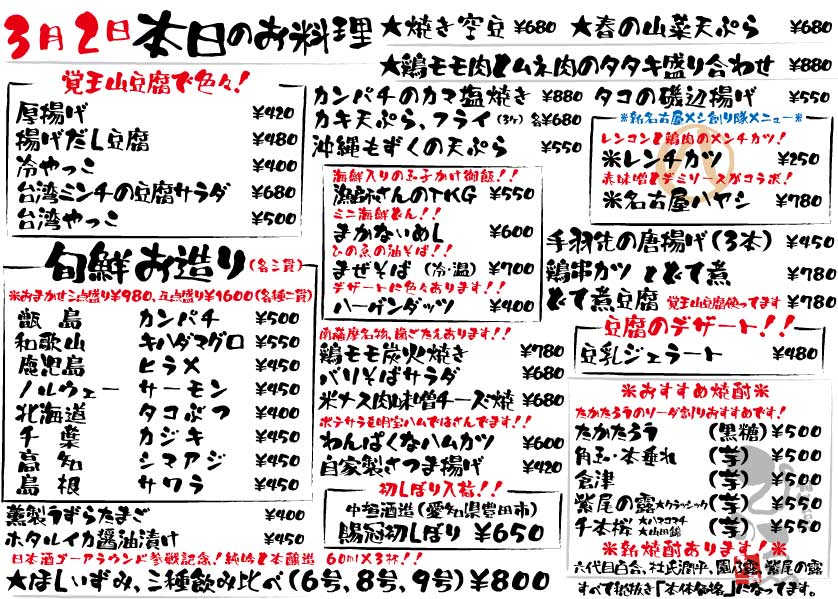 3月2日 本日のお料理
★焼き空豆 ¥680 ★春の山菜天ぷら ¥680
★鶏モモ肉とムネ肉のタタキ盛り合わせ ¥880
覚王山豆腐で色々!
厚揚げ ¥420
揚げだし豆腐 ¥480
冷やっこ ¥400
台湾ミンチの豆腐サラダ ¥680
台湾やっこ ¥500
旬鮮お造り(各二貫)
※おまかせ三点盛り¥980、五点盛り¥1600(各種二貫)
甑島 カンパチ ¥500
和歌山 キハダマグロ ¥550
鹿児島 ヒラメ ¥450
ノルウェー サーモン ¥450
北海道 タコぶつ ¥400
千葉 カジキ ¥450
高知 シマアジ ¥450
島根 サワラ ¥450
燻製うずらたまご ¥400
ホタルイカ醤油漬け ¥450
日本酒ゴーアラウンド参戦記念!純吟と本醸造 60ml×3杯!!
★ほしいずみ、三種飲み比べ(6号、8号、9号)¥800
カンパチのカマ塩焼き ¥880 タコの磯辺揚げ ¥550
カキ天ぷら、フライ(3ケ) 各¥680
沖縄もずくの天ぷら ¥550
海鮮入りの玉子かけ御飯!!
漁師さんのTKG ¥550
ミニ海鮮どん!!
まかないめし ¥600
ひの魚の油そば!!
まぜそば (冷・温) ¥700
デザートに色々あります!!
ハーゲンダッツ ¥400
南薩摩名物、歯ごたえあります!!
鶏モモ炭火焼き ¥780
バリそばサラダ ¥680
米ナス肉味噌チーズ焼 ¥680
ポテサラを明宝ハムではさんでます!!
わんぱくなハムカツ ¥600
自家製さつま揚げ ¥420
初しぼり入荷!!
中垣酒造(愛知県豊田市)
賜冠初しぼり ¥650
※新名古屋メシ創り隊メニュー※
レンコンと鶏肉のメンチカツ!
※レンチカツ ¥250
赤味噌とデミソースがコラボ!
※名古屋ハヤシ ¥780
手羽先の唐揚げ(3本) ¥450
鶏串カツ とどて煮 ¥780
どて煮豆腐 覚王山豆腐使ってます ¥780
豆腐のデザート!!
豆乳ジェラート ¥480
※おすすめ焼酎※
たかたろうのソーダ割りおすすめです!
たかたろう (黒糖)¥500
角玉・本垂れ (芋)¥500
倉津 (芋)¥500
紫尾の露★クラシック(芋)¥550
千本桜 ★ハマコマチ ★山田錦 (芋)¥550
※新焼酎あります!※
六代目百合、杜氏潤平、園乃露、紫尾の露
すべて税抜き「本体価格」になってます。